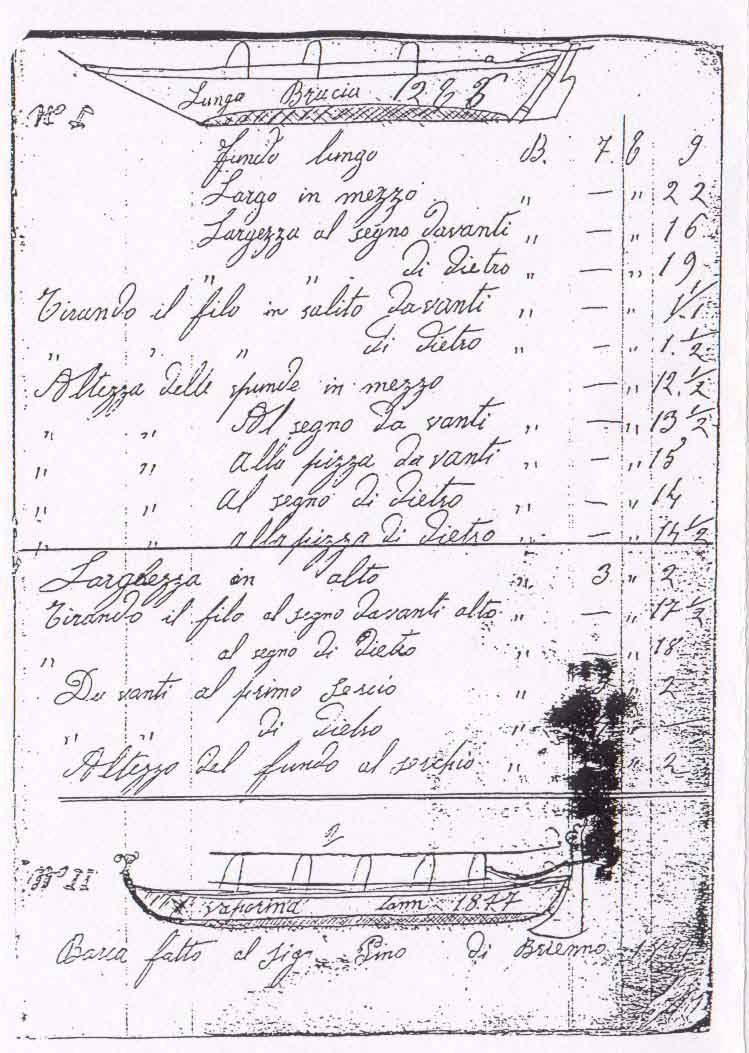 Lunga Bracia 12 E 5
N° I
Fundo lungo B. 7 E 9
Largo in mezzo „ — „ 22
Largezza al segno davanti „ — „ 16
„ „ di dietro „ — „ 19
Tirando il filo in salito davanti „ — „ 1.1/1
„ „ „ di dietro „ — „ 1.1/2
Altezza delle spunde in mezzo — „ 12.1/2
„ „ Al segno da vanti „ — „ 13 1/2
„ „ alla pizza davanti „ — „ 15
„ „ al segno di dietro „ — „ 14
„ „ alla pizza di dietro „ — „ 14 1/2
Larghezza in alto „ 3 „ 2
Tirando il filo al segno davanti alto „ — „ 17 1/2
„ al segno di dietro „ „ 18
Da vanti al primo sercio „ „ 2
„ „ di dietro „ „ —
Altezzo del fundo al serchio „ „ 2
2
N° II
vaporina lann 1847
Barca fatto al sigr Pino di Brienno